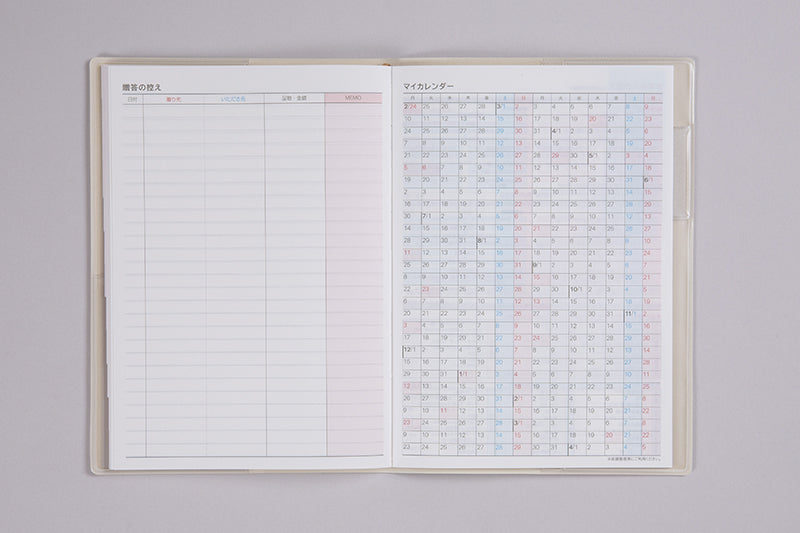 贈答の控え
日付 贈り先 いただき先 品物・金額 MEMO
マイカレンダー
月 火 水 木 金 土 日 月 火 水 木 金 土 日
2/24 25 26 27 28 3/1 2 3 4 5 6 7 8 9
10 11 12 13 14 15 16 17 18 19 20 21 22 23
24 25 26 27 28 29 30 31 4/1 2 3 4 5 6
7 8 9 10 11 12 13 14 15 16 17 18 19 20
21 22 23 24 25 26 27 28 29 30 5/1 2 3 4
5 6 7 8 9 10 11 12 13 14 15 16 17 18
19 20 21 22 23 24 25 26 27 28 29 30 31 6/1
2 3 4 5 6 7 8 9 10 11 12 13 14 15
16 17 18 19 20 21 22 23 24 25 26 27 28 29
30 7/1 2 3 4 5 6 7 8 9 10 11 12 13
14 15 16 17 18 19 20 21 22 23 24 25 26 27
28 29 30 31 8/1 2 3 4 5 6 7 8 9 10
11 12 13 14 15 16 17 18 19 20 21 22 23 24
25 26 27 28 29 30 31 9/1 2 3 4 5 6 7
8 9 10 11 12 13 14 15 16 17 18 19 20 21
22 23 24 25 26 27 28 29 30 10/1 2 3 4 5
6 7 8 9 10 11 12 13 14 15 16 17 18 19
20 21 22 23 24 25 26 27 28 29 30 31 11/1 2
3 4 5 6 7 8 9 10 11 12 13 14 15 16
17 18 19 20 21 22 23 24 25 26 27 28 29 30
12/1 2 3 4 5 6 7 8 9 10 11 12 13 14
15 16 17 18 19 20 21 22 23 24 25 26 27 28
29 30 31 1/1 2 3 4 5 6 7 8 9 10 11
12 13 14 15 16 17 18 19 20 21 22 23 24 25
26 27 28 29 30 31 2/1 2 3 4 5 6 7 8
9 10 11 12 13 14 15 16 17 18 19 20 21 22
23 24 25 26 27 28 3/1 2 3 4 5 6 7 8
9 10 11 12 13 14 15 16 17 18 19 20 21 22
23 24 25 26 27 28 29 30 31 4/1 2 3 4 5
ご利用ください。